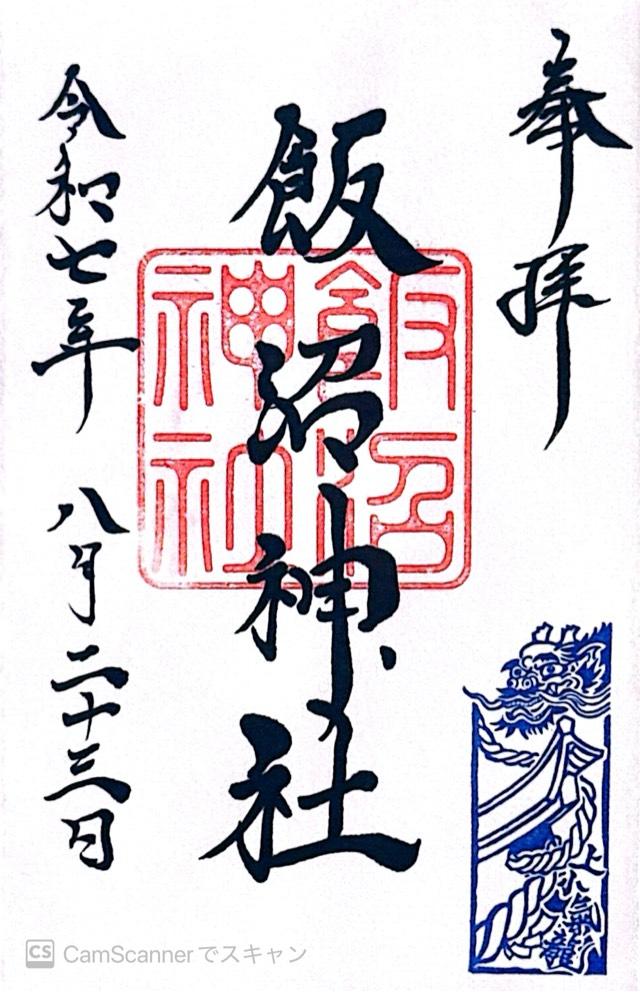 奉拝
飯沼神社
飯沼
神社
令和七年 八月二十三日
CS CamScannerでスキャン